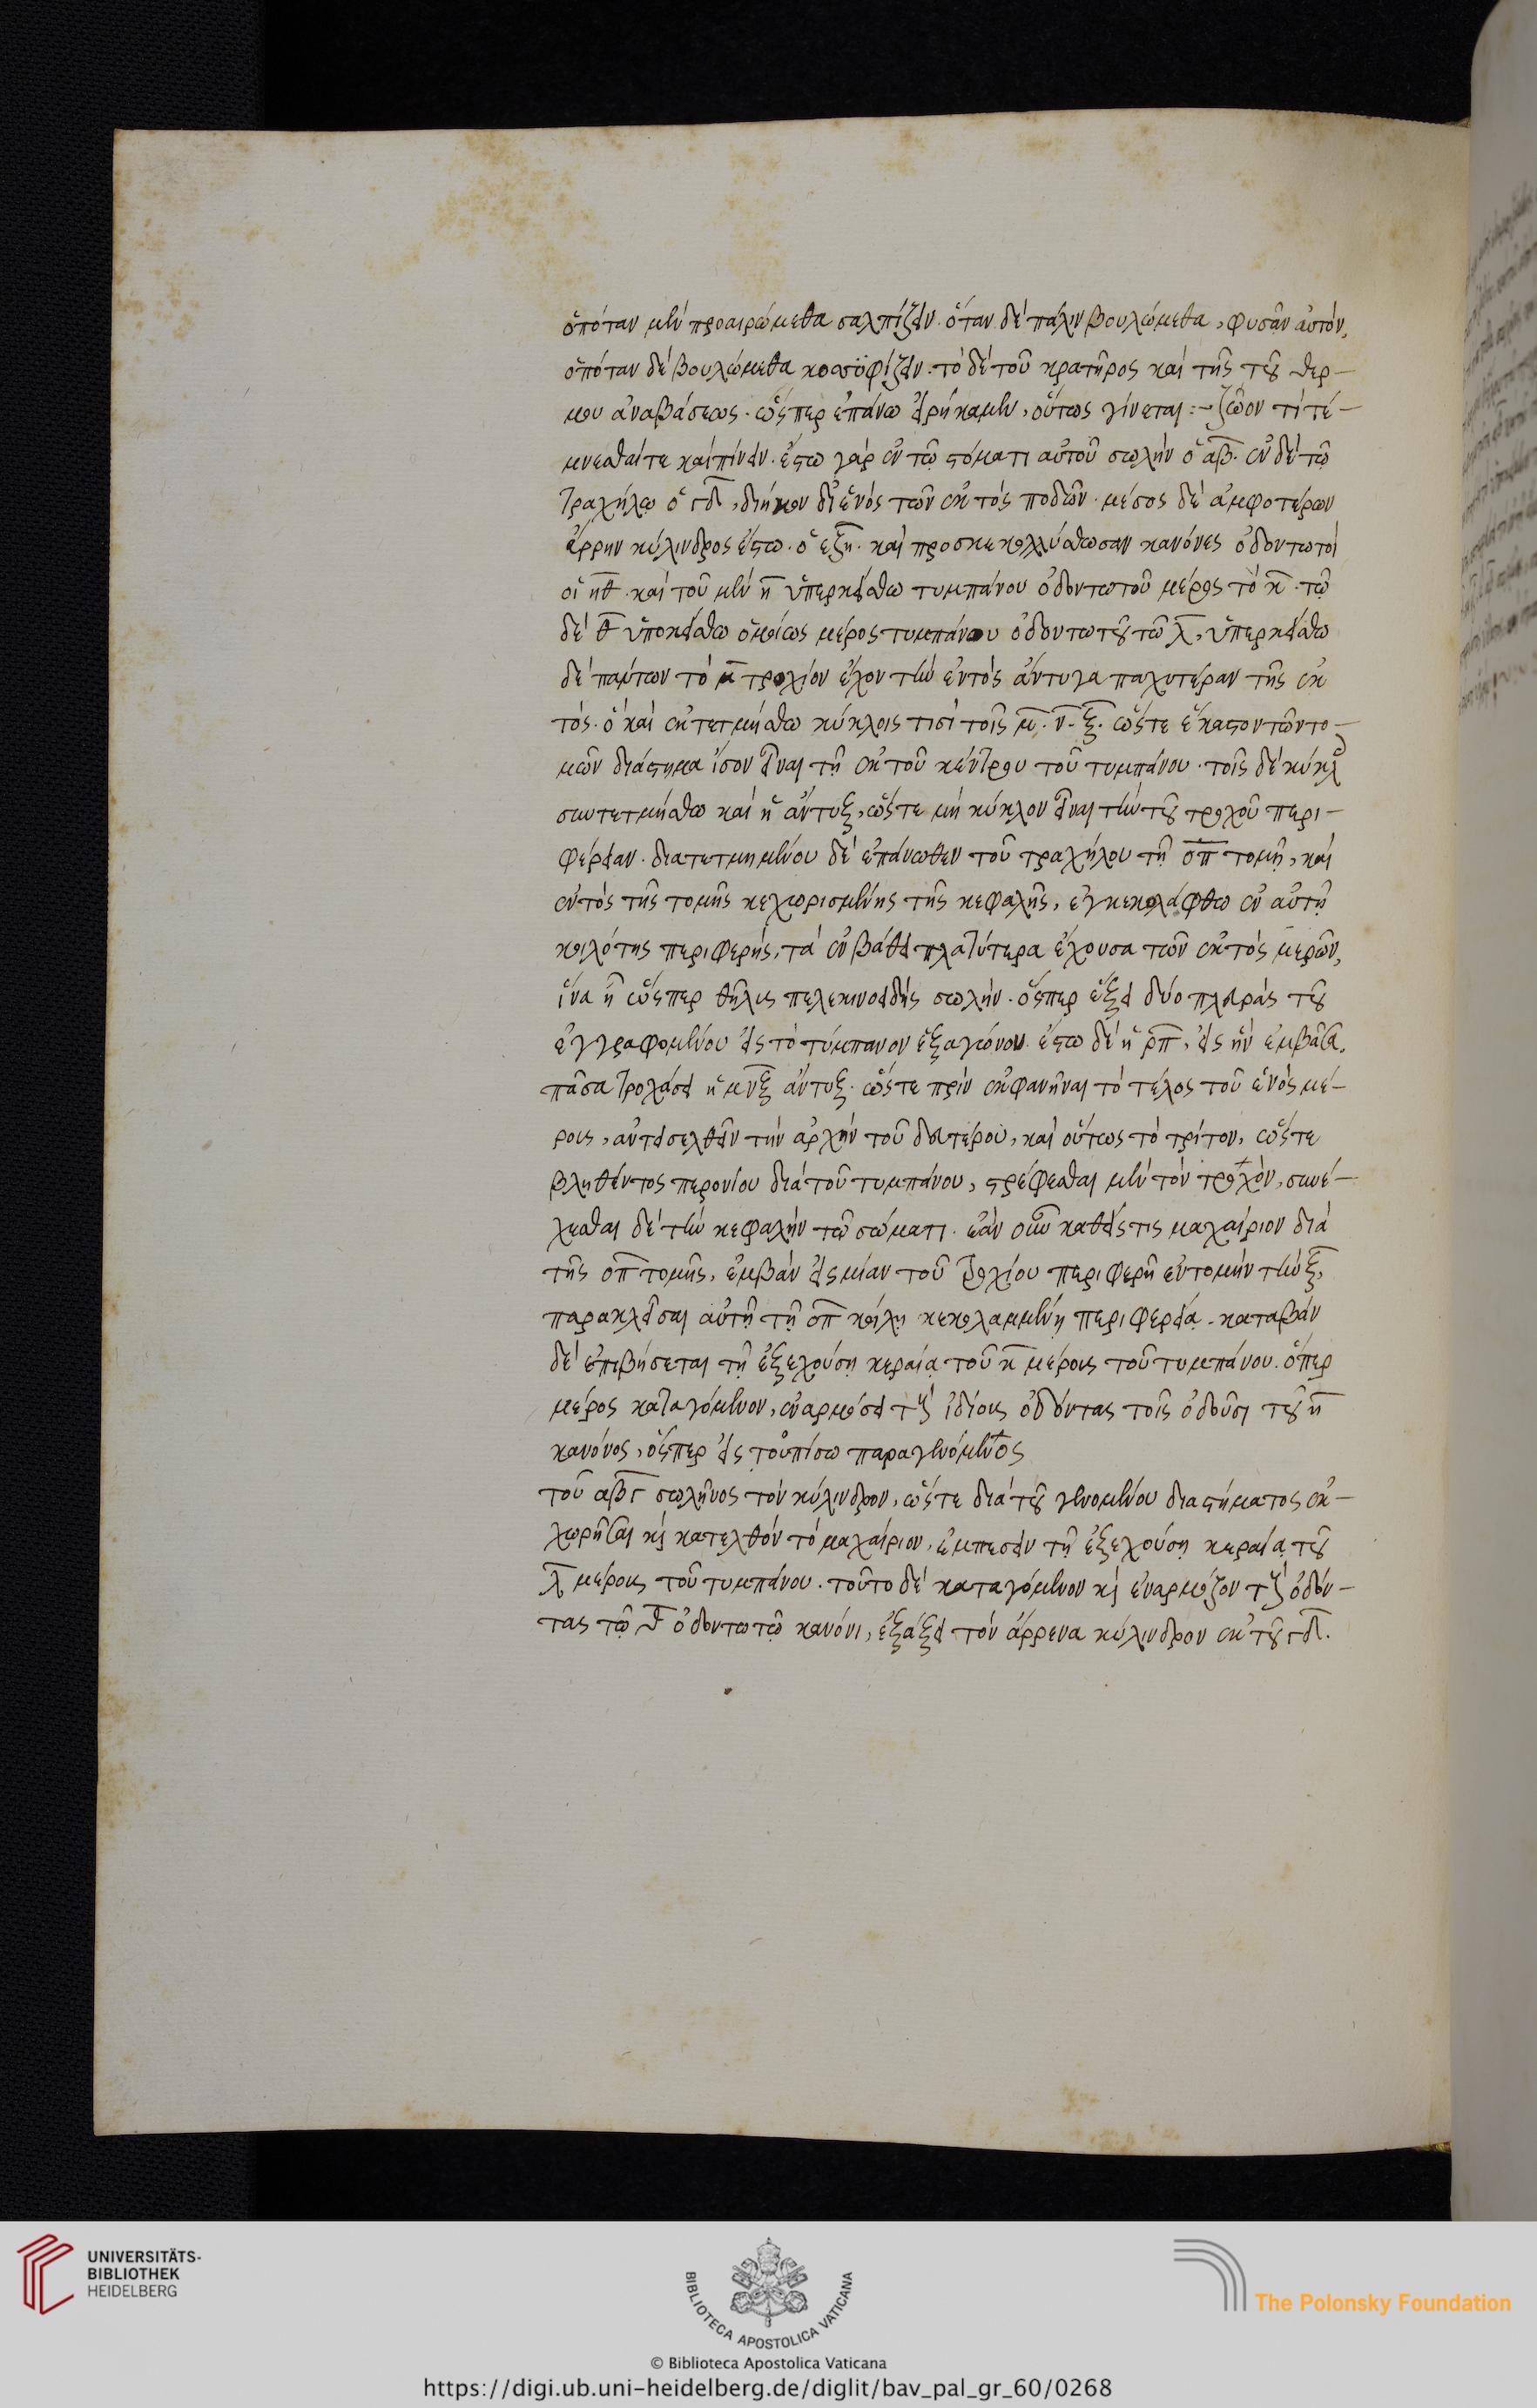 ὁπόταν μὲν προαιρώμεθα σαλπίζειν. ὅταν δὲ πάλιν βουλώμεθα, φυσᾶν αὐτόν,
ὁπόταν δὲ βουλώμεθα κοσσυφίζειν. τὸ δὲ τοῦ κρατῆρος καὶ τῆς τοῦ θερ-
μου ἀναβάσεως. ὥσπερ ἐπάνω εἰρήκαμεν, οὕτως γίνεται :- ζῶον τί τέ-
μνεσθαί τε καὶ πίνειν. ἔστω γὰρ ἐν τῷ στόματι αὐτοῦ σωλὴν ὁ αβ. ἐν δὲ τῷ
τραχήλῳ ὁ γδ, διήκων δι' ἑνὸς τῶν ἐκτὸς ποδῶν. μέσος δὲ ἀμφοτέρων
ἄρρην κύλινδρος ἔστω. ὁ εζη. καὶ προσκεκολλύσθωσαν κανόνες ὀδοντωτοὶ
οἱ ηθ. καὶ τοῦ μὲν η ὑπερκείσθω τυμπάνου ὀδοντωτοῦ μέρος τὸ κ. τῷ
δὲ θ ὑποκείσθω ὁμοίως μέρος τυμπάνου ὀδοντωτοῦ τῶ λ, ὑπερκείσθω
δὲ πάντων τὸ μ τροχίον ἔχον τὴν ἐντὸς ἄντυγα παχυτέραν τῆς ἐκ
τός. ὃ καὶ ἐκτετμήσθω κύκλοις τισὶ τοῖς μ. ν. ξ. ὥστε ἕκαστον τῶν το-
μῶν διάστημα ἴσον εἶναι τῇ ἐκ τοῦ κέντρου τοῦ τυμπάνου. τοῖς δὲ κύκλ
συντετμήσθω καὶ ἡ ἄντυξ, ὥστε μὴ κύκλον εἶναι τὴν τοῦ τροχοῦ περι-
φέρειαν. διατετμημένου δὲ ἐπάνωθεν τοῦ τραχήλου τῇ οπ τομῇ, καὶ
ἐντὸς τῆς τομῆς κεχωρισμένης τῆς κεφαλῆς, ἐγκεκολάφθω ἐν αὐτῇ
κοιλότης περιφερής, τὰ ἐν βάθει πλατύτερα ἔχουσα τῶν ἐκτὸς μερῶν,
ἵνα ᾖ ὥσπερ θῆλις πελεκινοειδὴς σωλήν. ὅσπερ ἕξει δύο πλευρὰς τοῦ
ἐγγραφομένου εἰς τὸ τύμπανον ἑξαγώνου. ἔστω δὲ ἡ ρπ, εἰς ἣν ἐμβᾶσα,
πᾶσα τροχάσει ἡ μνξ ἄντυξ. ὥστε πρὶν ἐκφανῆναι τὸ τέλος τοῦ ἑνὸς μέ-
ρους, ἀντεισελθεῖν τὴν ἀρχὴν τοῦ δευτέρου, καὶ οὕτως τὸ τρίτον, ὥστε
βληθέντος περονίου διὰ τοῦ τυμπάνου, στρέφεσθαι μὲν τὸν τροχὸν, συνέ-
χεσθαι δὲ τὴν κεφαλὴν τῷ σώματι. ἐὰν οὖν καθεῖς τις μαχαίριον διὰ
τῆς οπ τομῆς, ἐμβὰν εἰς μίαν τοῦ τροχίου περιφερῆ ἐντομὴν τὴν ξ,
παρακλεῖσαι αὐτῇ τῇ οπ κοίλῃ κεκολαμμένῃ περιφερείᾳ. καταβὰν
δὲ ἐπιβήσεται τῇ ἐξεχούσῃ κεραίᾳ τοῦ κ μέρους τοῦ τυμπάνου. ὅπερ
μέρος καταγόμενον, ἐναρμόσει τοὺς ἰδίους ὀδόντας τοῖς ὀδοῦσι τοῦ η
κανόνος, ὅσπερ εἰς τοὐπίσω παραγενόμενος
τοῦ αβγ σωλῆνος τὸν κύλινδρον, ὥστε διὰ τοῦ γενομένου διαστήματος ἐκ-
χωρῆσαι καὶ κατελθὸν τὸ μαχαίριον, ἐμπεσεῖν τῇ ἐξεχούσῃ κεραίᾳ τοῦ
λ μέρους τοῦ τυμπάνου. τοῦτο δὲ καταγόμενον καὶ ἐναρμόζον τοὺς ὀδόν-
τας τῷ θ ὀδοντωτῷ κανόνι, ἐξάξει τὸν ἄρρενα κύλινδρον ἐκ τοῦ γδ.
UNIVERSITÄTS-
BIBLIOTHEK
HEIDELBERG
BIBLIOTECA APOSTOLICA VATICANA
© Biblioteca Apostolica Vaticana
The Polonsky Foundation
https://digi.ub.uni-heidelberg.de/diglit/bav_pal_gr_60/0268